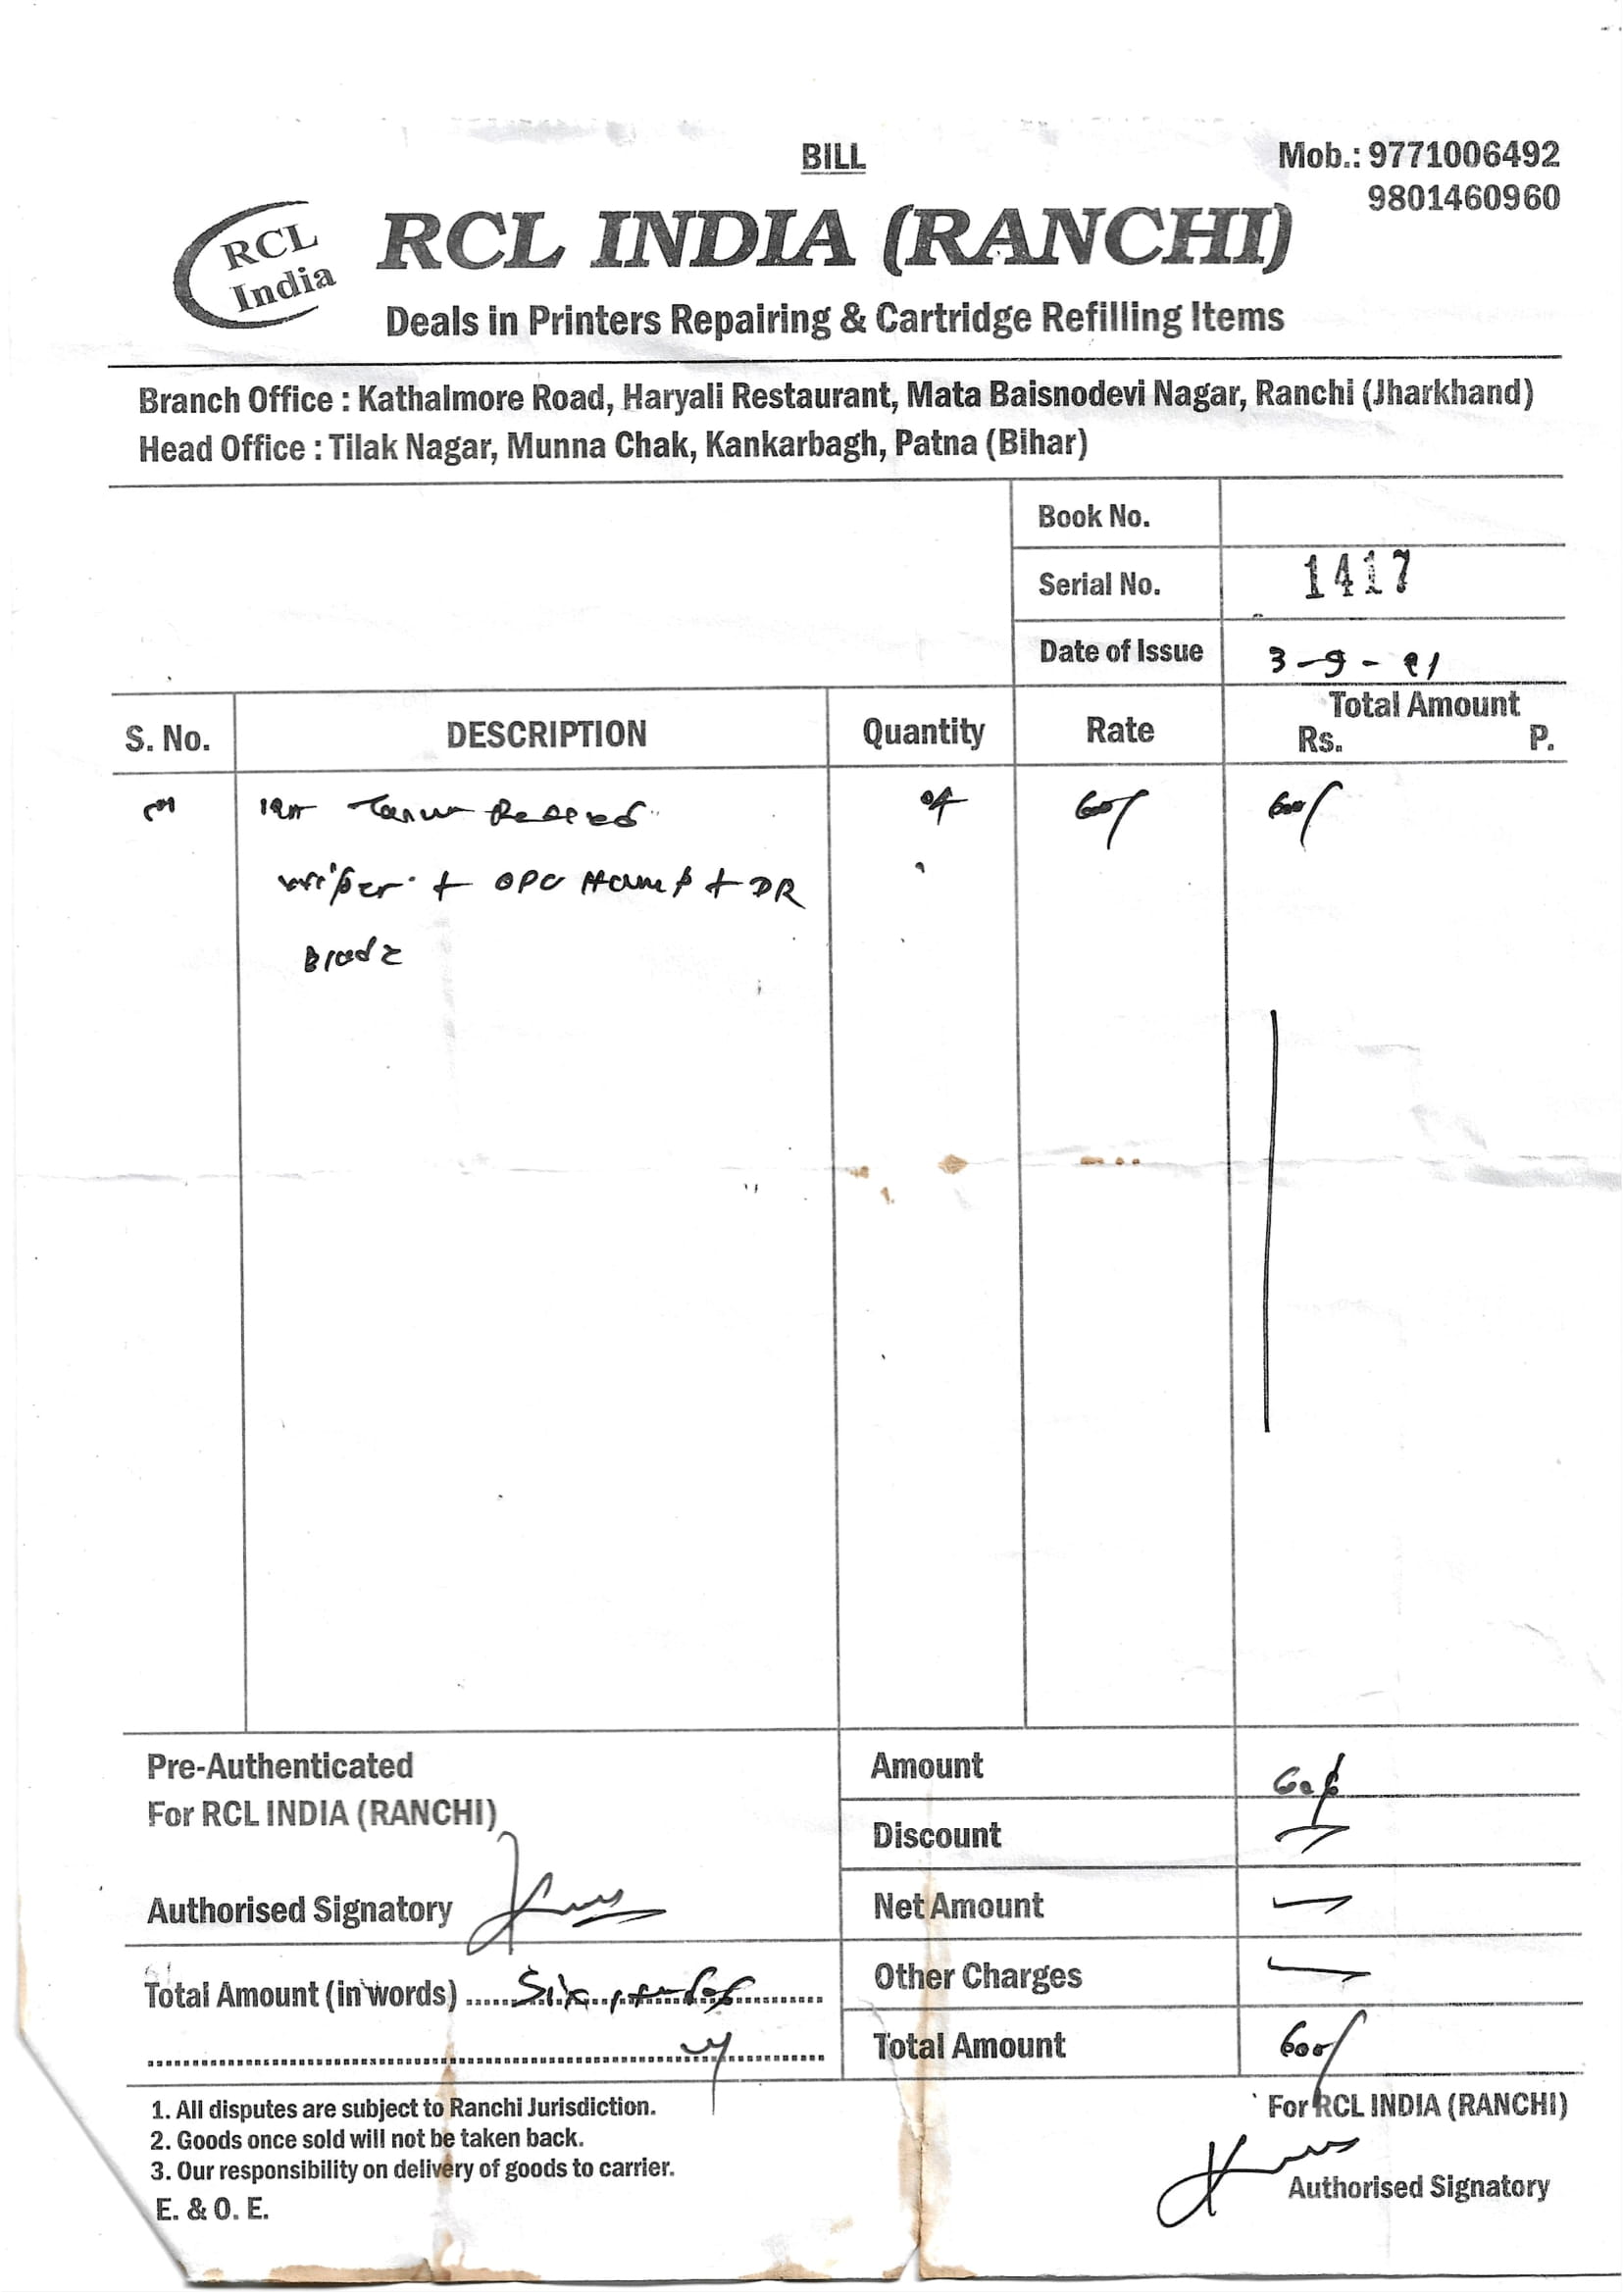 BILL
Mob.: 9771006492
9801460960
RCL India
RCL INDIA (RANCHI)
Deals in Printers Repairing & Cartridge Refilling Items
Branch Office : Kathalmore Road, Haryali Restaurant, Mata Baisnodevi Nagar, Ranchi (Jharkhand)
Head Office : Tilak Nagar, Munna Chak, Kankarbagh, Patna (Bihar)
Book No.
Serial No. 1417
Date of Issue 3-9-21
S. No. DESCRIPTION Quantity Rate Total Amount
Rs. P.
600/ 600/
wiper + OPC + DR
Blade
Pre-Authenticated
For RCL INDIA (RANCHI)
Authorised Signatory
Amount 600/
Discount
Net Amount
Other Charges
Total Amount (in words) Six
Total Amount 600/
1. All disputes are subject to Ranchi Jurisdiction.
2. Goods once sold will not be taken back.
3. Our responsibility on delivery of goods to carrier.
E. & O. E.
For RCL INDIA (RANCHI)
Authorised Signatory